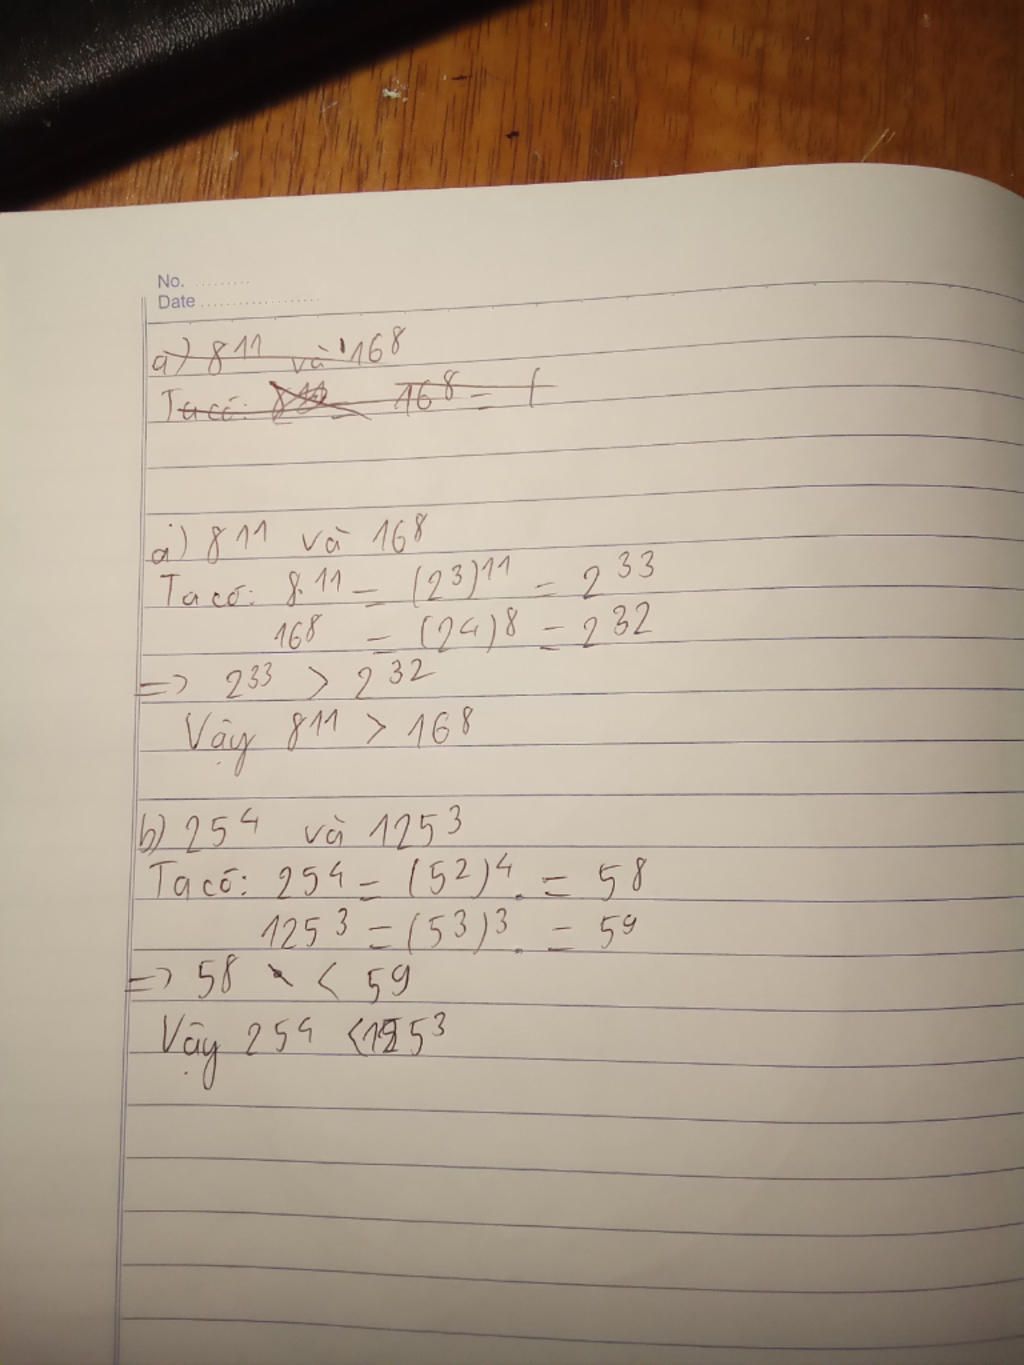 No. .........
Date ..................
a) 8¹¹ và 16⁸
Ta có: 8¹¹ = 16⁸ = (
a) 8¹¹ và 16⁸
Ta có: 8¹¹ = (2³)¹¹ = 2³³
16⁸ = (2⁴)⁸ = 2³²
=> 2³³ > 2³²
Vậy 8¹¹ > 16⁸
b) 25⁴ và 125³
Ta có: 25⁴ = (5²)⁴ = 5⁸
125³ = (5³)³ = 5⁹
=> 5⁸ < 5⁹
Vậy 25⁴ < 125³